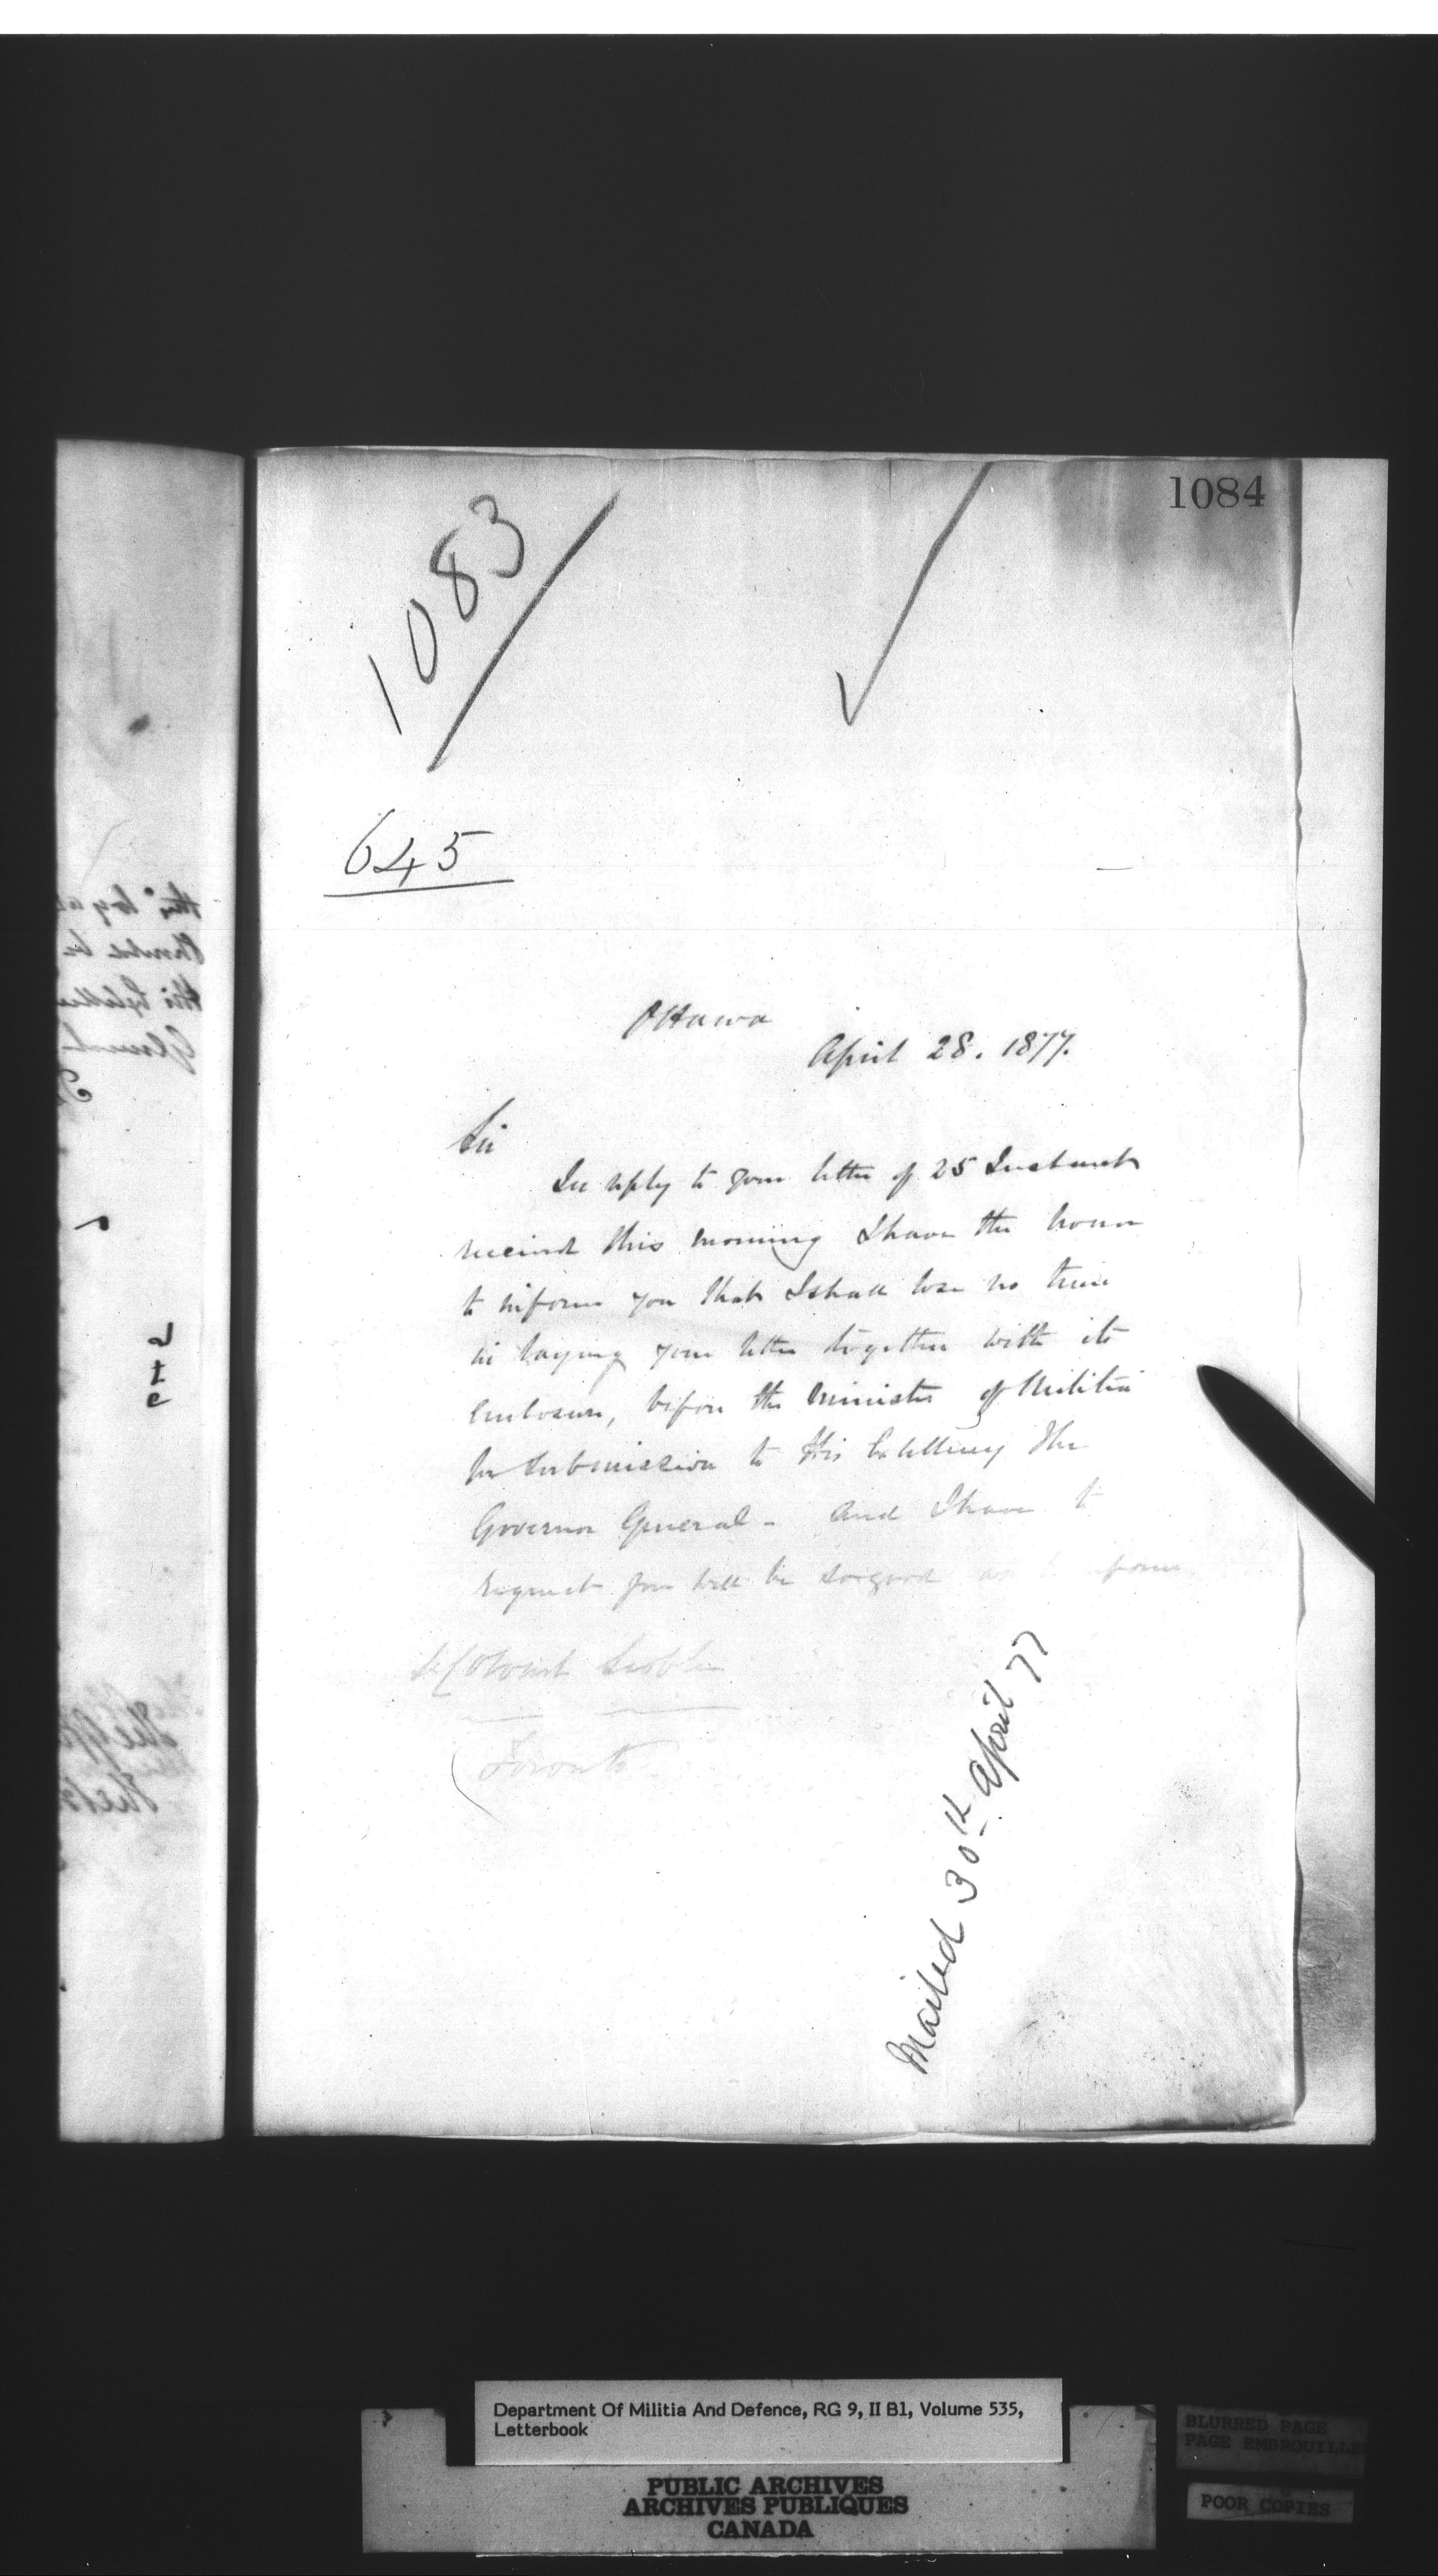 1084
1083
645
Ottawa
April 28. 1877.
Sir
In reply to your letter of 25 Instant
received this morning I have the honor
to inform you that I shall lose no time
in laying your letter together with its
enclosure, before the Minister of Militia
for submission to His Excellency The
Governor General - and I have to
request you will be so good as
Lt Colonel
Toronto
Mailed 30th April 77
Department Of Militia And Defence, RG 9, II B1, Volume 535,
Letterbook
PUBLIC ARCHIVES
ARCHIVES PUBLIQUES
CANADA
BLURRED PAGE
PAGE EMBROUILLE
POOR COPIES